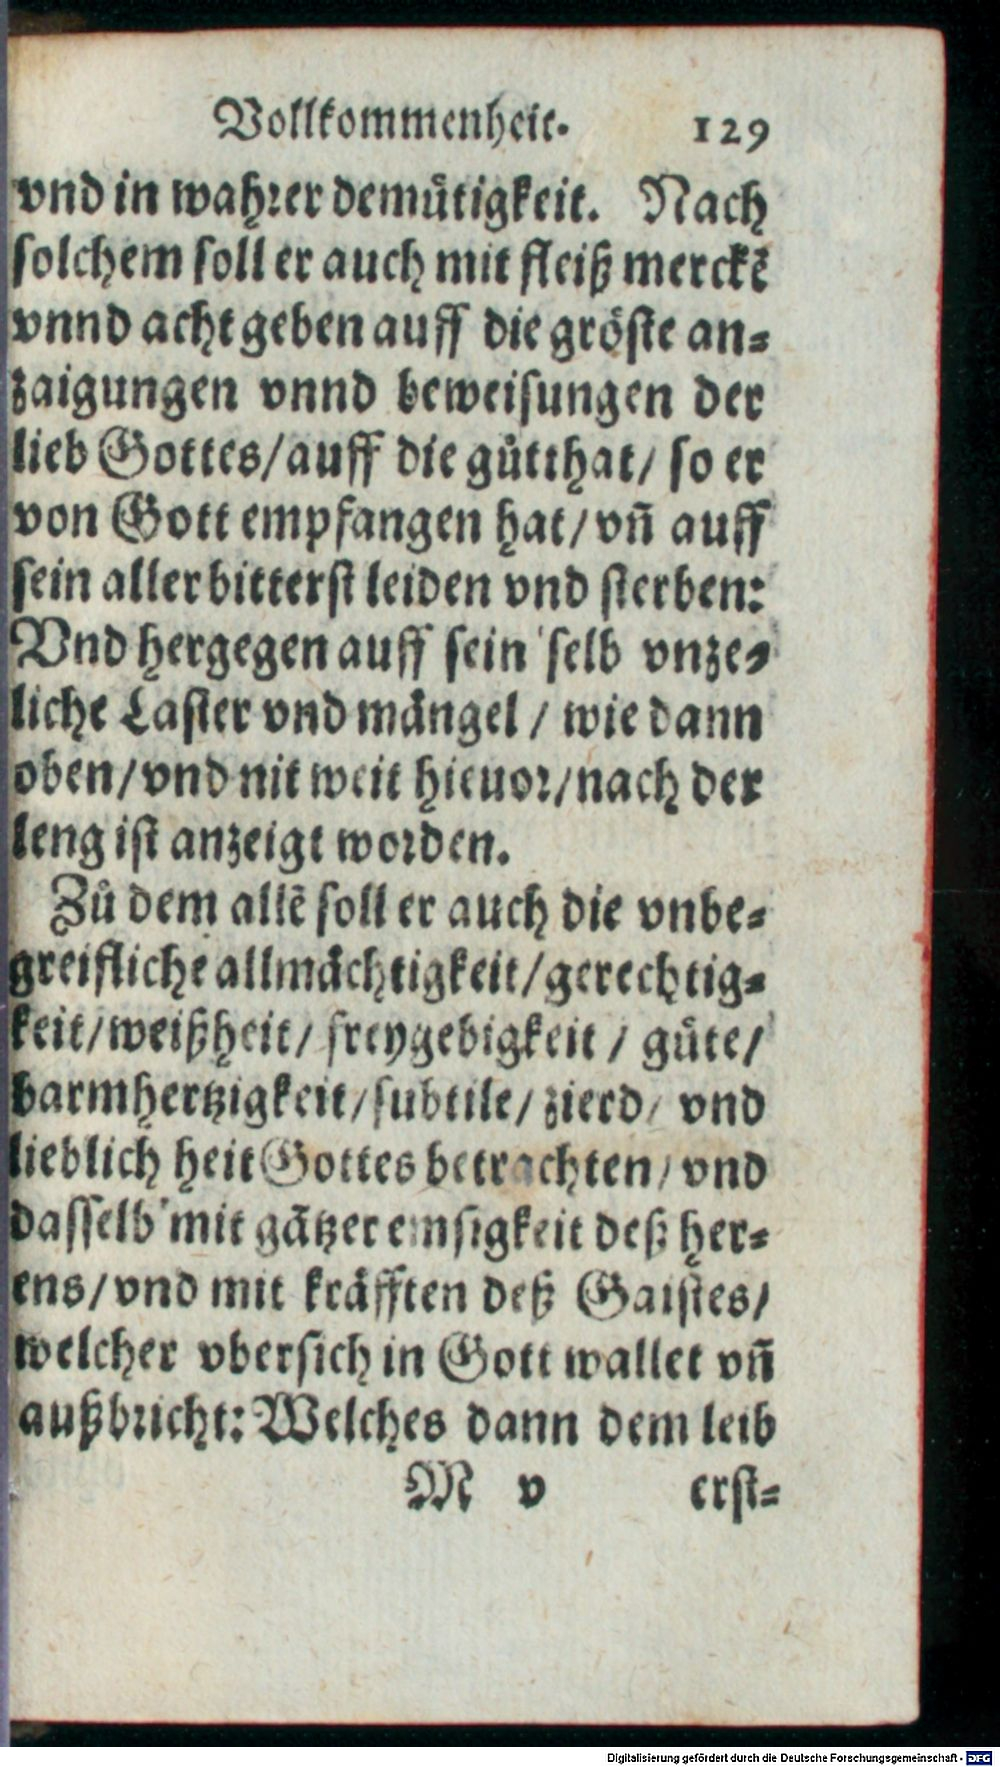 Vollkommenheit. 129
vnd in wahrer demuͤtigkeit. Nach
solchem soll er auch mit fleiß merckē
vnnd acht geben auff die groͤste an-
zaigungen vnnd beweisungen der
lieb Gottes/auff die guͤtthat/ so er
von Gott empfangen hat/ vñ auff
sein allerbitterst leiden vnd sterben:
Vnd hergegen auff sein selb vnze-
liche Laster vnd maͤngel / wie dann
oben/vnd nit weit hieuor/nach der
leng ist anzeigt worden.
Zů dem allē soll er auch die vnbe-
greifliche allmaͤchtigkeit/gerechtig-
keit/weißheit/ freygebigkeit / guͤte/
barmhertzigkeit/subtile/ zierd/ vnd
lieblich heit Gottes betrachten/ vnd
dasselb mit gātzer emsigkeit deß her-
ens/vnd mit kraͤfften deß Gaistes/
welcher vbersich in Gott wallet vñ
außbricht: Welches dann dem leib
M v erst-
Digitalisierung gefördert durch die Deutsche Forschungsgemeinschaft - DFG